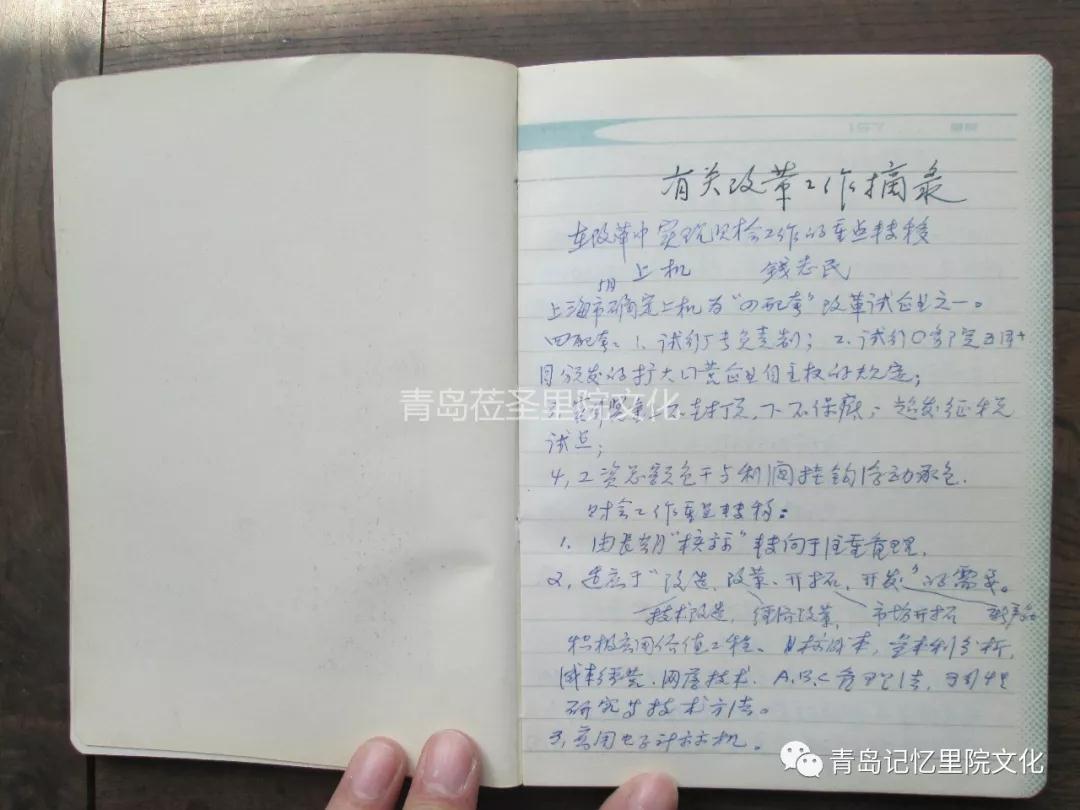 有关改革工作摘录
在改革中实现财会工作的重点转移
上机 钱志民
5月
上海市确定上机为“四配套”改革试点企业之一。
四配套:1、试行厂长负责制;2、试行国务院五月十
日颁发的扩大国营企业自主权的规定;
3、上不封顶,下不保底;
试点;
4、工资总额包干与利润挂钩浮动承包.
财会工作重点转移:
1、由长期“核算”转向于注重管理.
2、适应于“改造、改革、开拓、开发”的需要。
技术改造, 经济改革, 市场开拓 新产品
积极应用价值工程、成本,量本利分析,
网度技术.A,B,C管理法,可行性
研究等技术方法。
3、应用电子计算机。
青岛莅圣里院文化
青岛记忆里院文化